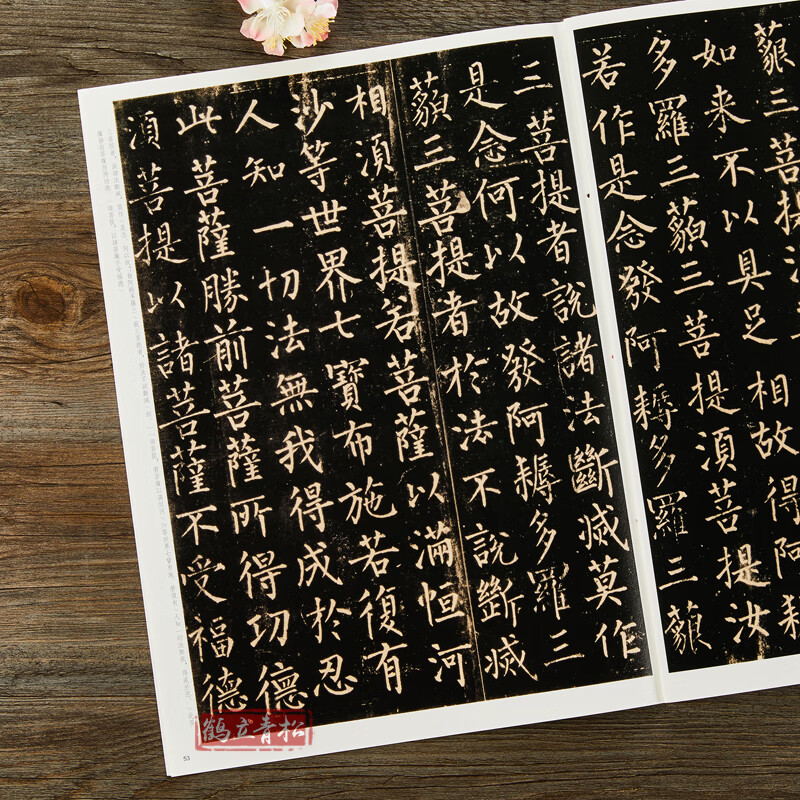 藐三菩提
如来不以具足相故得阿耨
多羅三藐三菩提須菩提汝
若作是念發阿耨多羅三藐
三菩提者說諸法斷滅莫作
是念何以故發阿耨多羅三
藐三菩提者於法不說斷滅
相須菩提若菩薩以滿恒河
沙等世界七寶布施若復有
人知一切法無我得成於忍
此菩薩勝前菩薩所得功德
須菩提以諸菩薩不受福德
53
鶴立青松